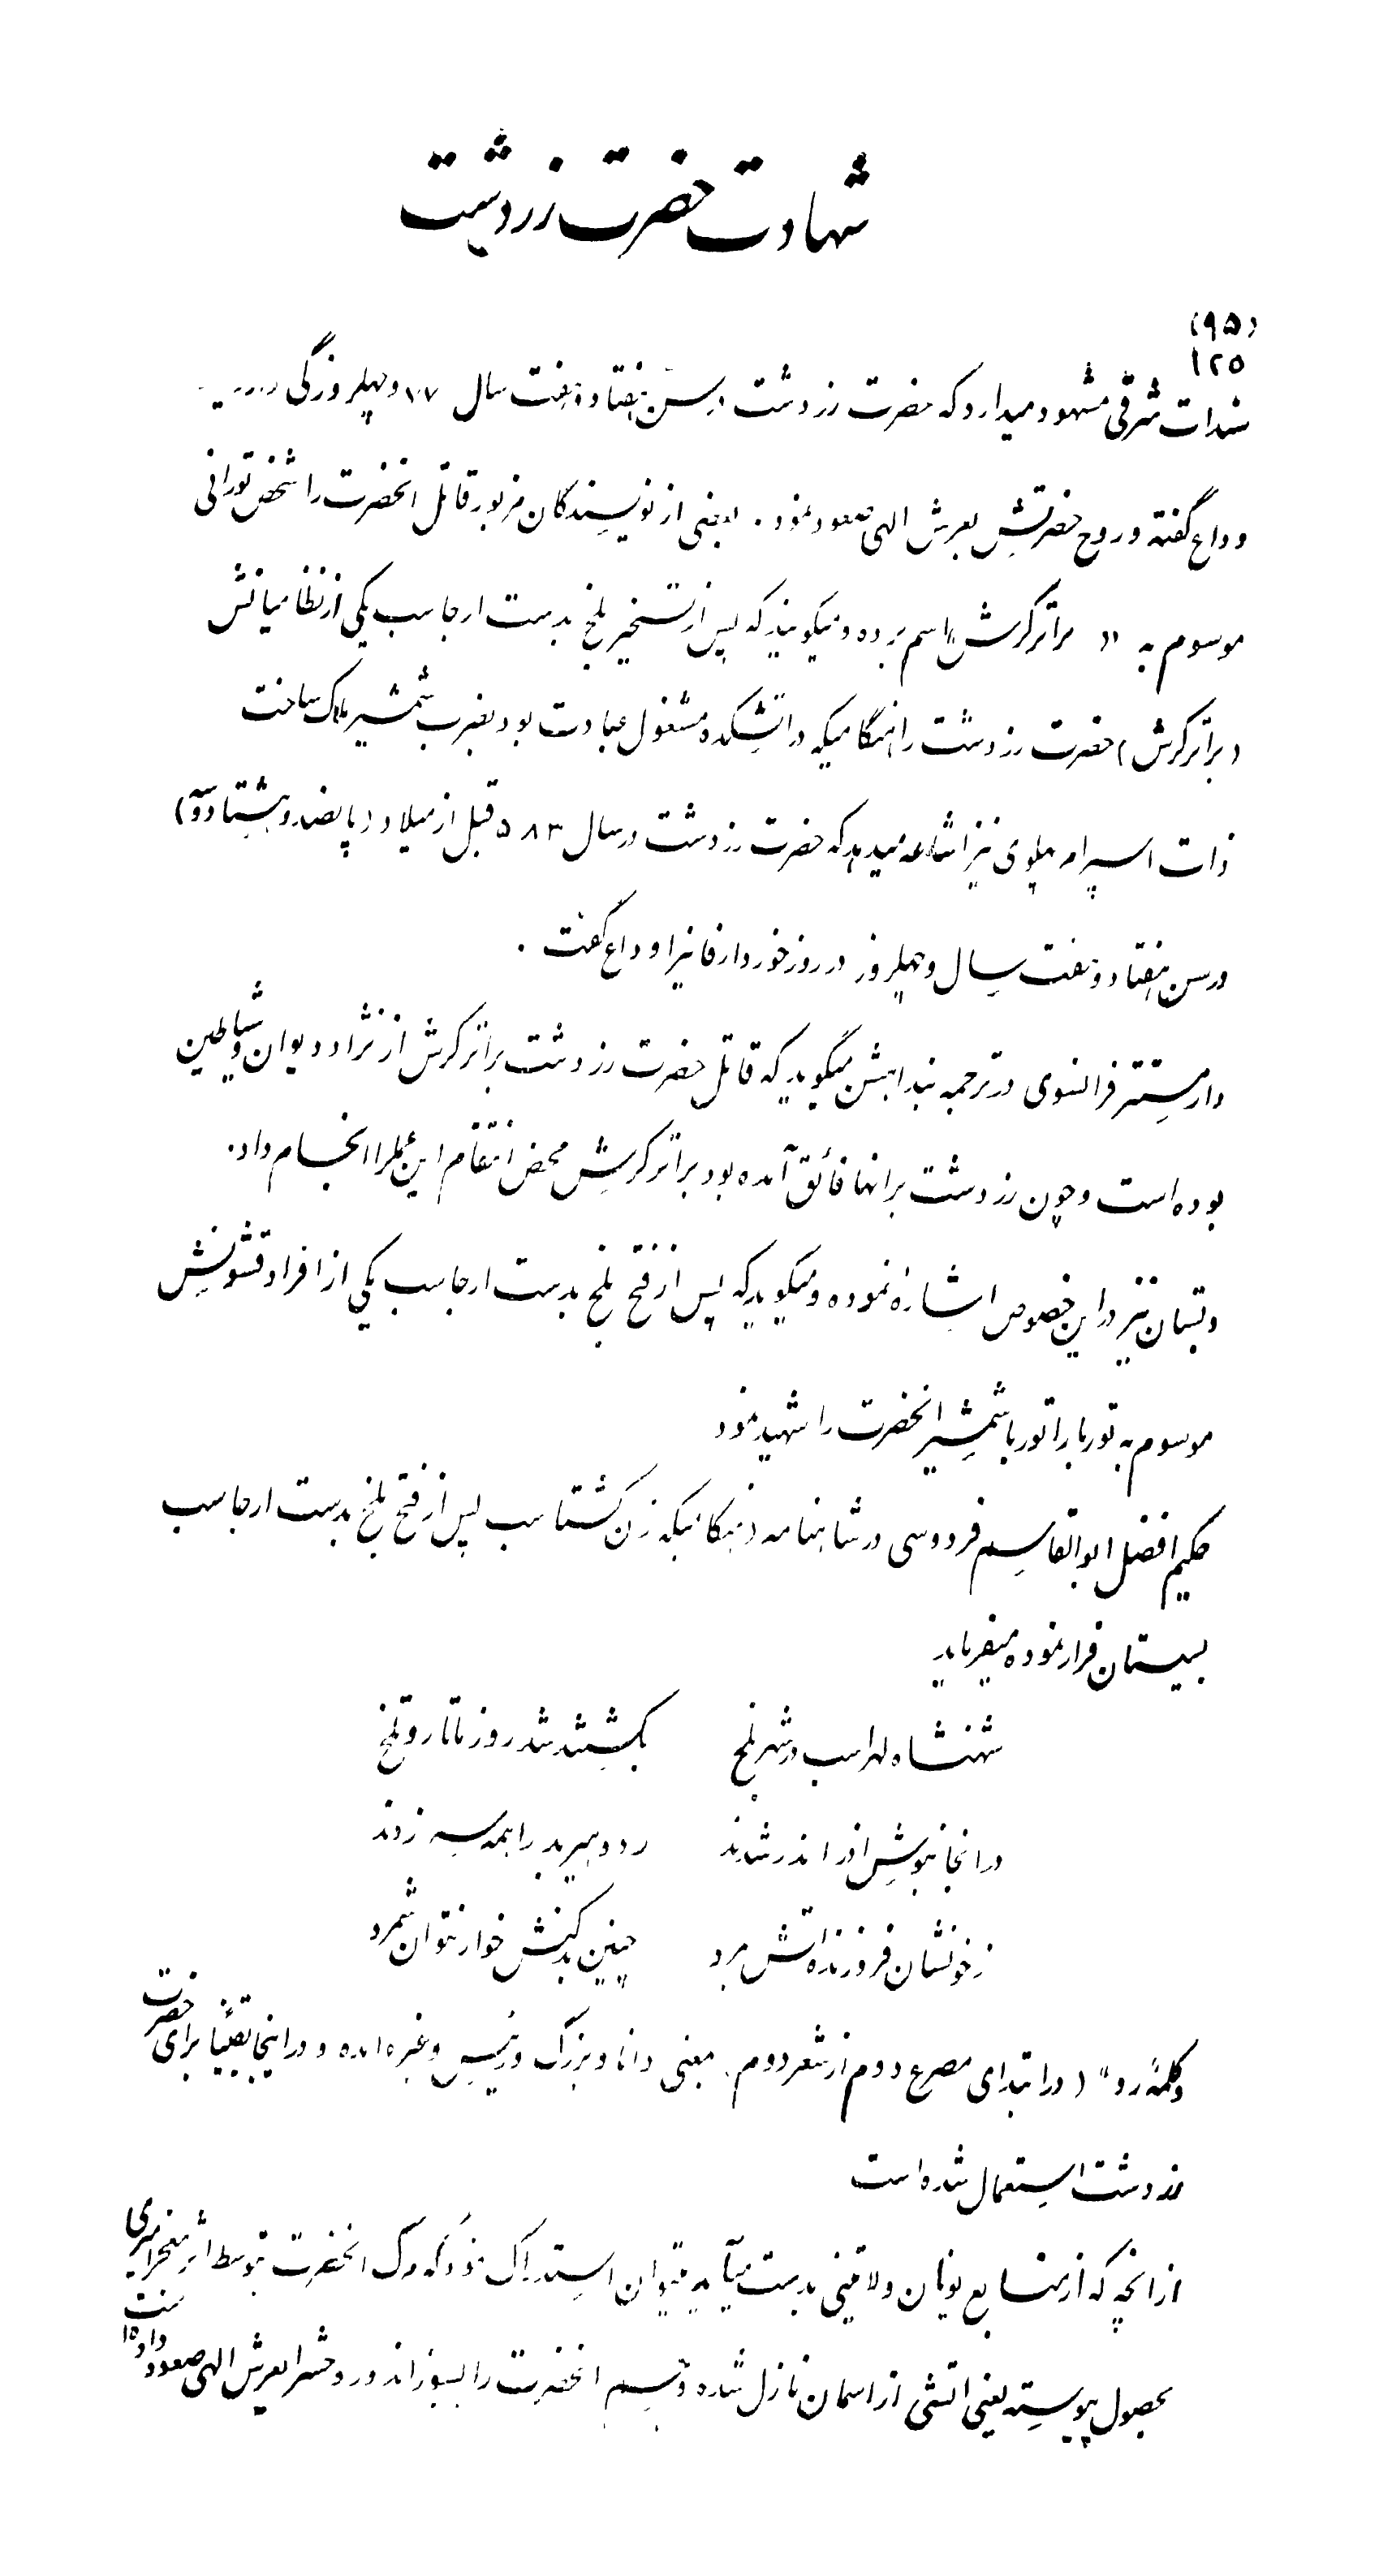 شهادت حضرت زردشت
(۹۵)
۱۲۵
سندات شرقی مشهود میدارد که حضرت زردشت در سن هفتاد و هفت سال ۷۷ و چهل روزگی
وداع گفته و روح حضرتش بعرش الهی صعود نمود . بعضی از نویسندگان مزبور قاتل انحضرت را شخص تورانی
موسوم به « براترکرش » اسم برده و میگویند که پس از تسخیر بلخ بدست ارجاسب یکی از نظامیانش
(براترکرش) حضرت زردشت را هنگامیکه در اتشکده مشغول عبادت بود بضرب شمشیر هلاک ساخت
ذات اسپرام پهلوی نیز اشاعه میدهد که حضرت زردشت در سال ۵۸۳ قبل از میلاد (پانصد و هشتاد و سه)
در سن هفتاد و هفت سال و چهل روز در روز خور دار فانیرا وداع گفت .
دارمستتر فرانسوی در ترجمه بندهشن میگوید که قاتل حضرت زردشت براترکرش از نژاد دیوان و شیاطین
بوده است و چون زردشت برانها فائق آمده بود براترکرش محض انتقام این عملرا انجام داد.
دبستان نیز در این خصوص اشاره نموده و میگوید که پس از فتح بلخ بدست ارجاسب یکی از افراد قشونش
موسوم به توربراتور با شمشیر انحضرت را شهید نمود
حکیم افضل ابوالقاسم فردوسی در شاهنامه هنگامیکه زن گشتاسب پس از فتح بلخ بدست ارجاسب
بسیستان فرار نموده میفرماید
شهنشاه لهراسب در شهر بلخ بکشتند شد روز ما تار و تلخ
در انجا بنوش اذر اندر شدند رد و هیربد را همه سر زدند
ز خونشان فروزنده اتش بمرد چنین بدکنش خوار نتوان شمرد
و کلمهٔ رد" (در ابتدای مصرع دوم از شعر دوم) بمعنی دانا و بزرگ و رئیس و غیره امده و در اینجا یقیناً برای حضرت
زردشت استعمال شده است
از انچه که از منابع یونان و لاتینی بدست میآید میتوان استدراک نمود که مرگ انحضرت بتوسط اثر معجزه
بحصول پیوسته یعنی اتشی از اسمان نازل شده و جسم انحضرت را بسوزاند و روحش را بعرش الهی صعود داده است